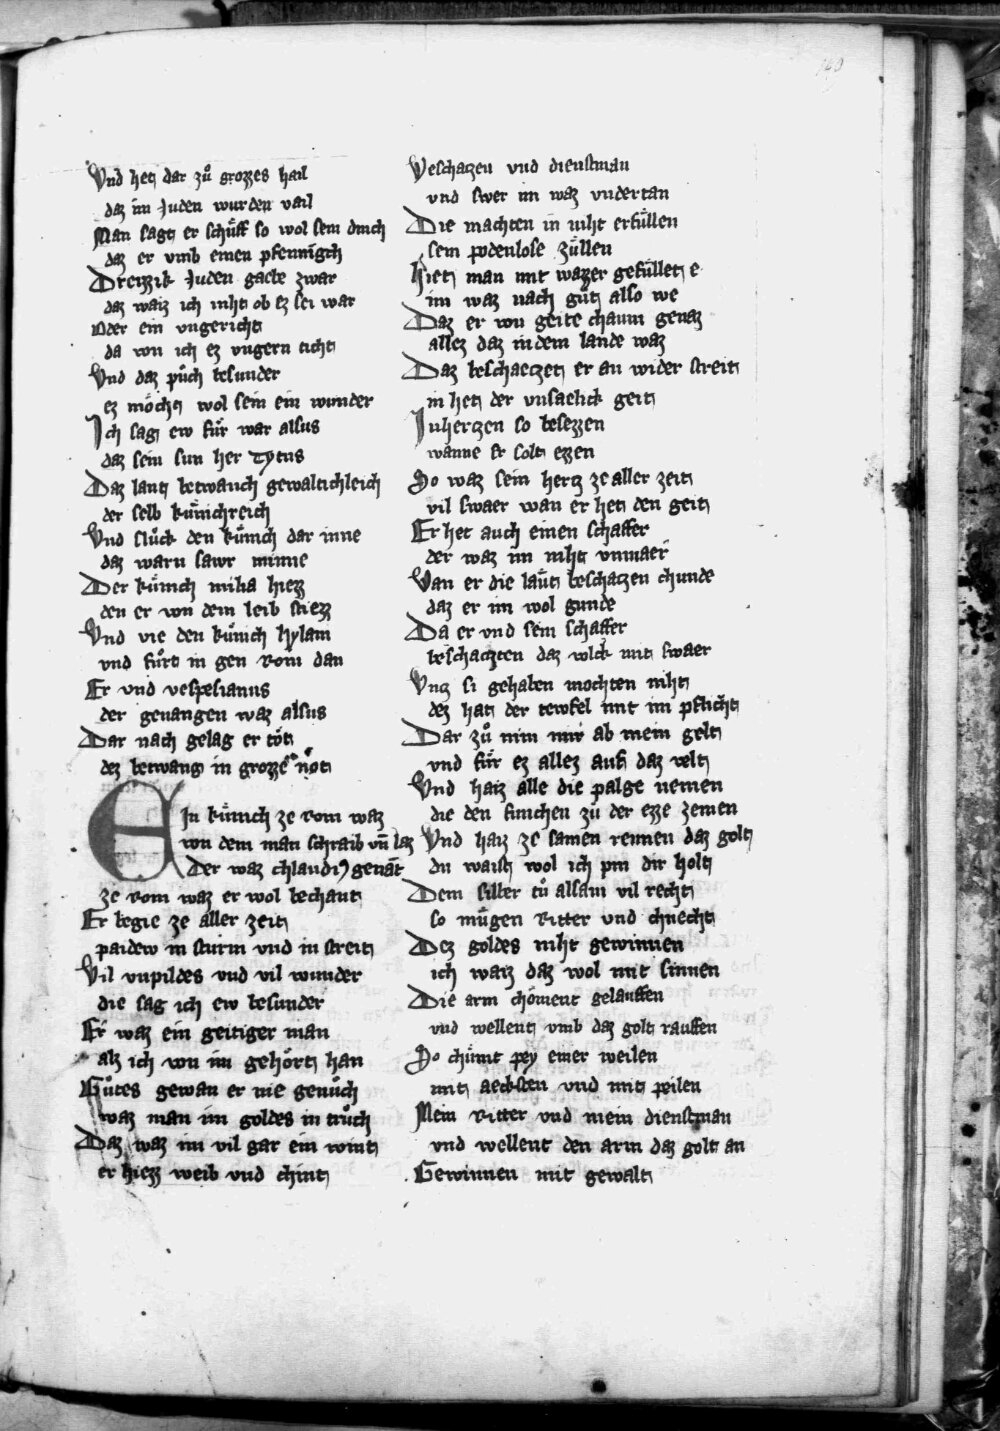 Vnd het dar zuͦ grozzes hail
daz im Juden wurden vail
Man sagt er schuͤff so wol sein dinch
daz er vmb einen pfenningch
Dreizzik Juden gaebe zwar
daz waiz ich niht ob ez sei war
Oder ein vngericht
da von ich ez vngern ticht
Vnd daz puͦch besunder
ez moͤcht wol sein ein wunder
Ich sag ew fuͤr war alsus
daz sein sun her Tytus
Daz lant betwanch gewaltichleich
der selb kuͤnichreich
Vnd sluͦck den kuͤnich dar inne
daz warn sawr minne
Der kuͤnich milia hiezz
den er von dem leib stiezz
Vnd vie den kuͤnich hylam
vnd fuͦrt in gen Rom dan
Er vnd vespesianus
der geuangen waz alsus
Dar nach gelag er tot
dez betwang in grozzeͤ not
EIn kuͤnich ze Rom waz
von dem man schraib vn̄ laz
Der waz chlaudiꝰ genāt
ze Rom waz er wol bechant
Er begie ze aller zeit
paidew in sturm vnd in streit
Vil vnpildes vnd vil wunder
die sag ich ew besunder
Er waz ein geitiger man
alz ich von im gehoͤrt han
Guͦtes gewan er nie genuͦch
waz man im goldes in truͦch
Daz waz im vil gar ein wint
er hiezz weib vnd chint
Beschatzen vnd dienstman
vnd swer im waz vndertan
Die machten in niht erfuͤllen
sein podenlose zuͤllen
Hiet man mit wazzer gefuͤllet e
im waz nach guͦt also we
Daz er von geite chaum genaz
allez daz in dem lande waz
Daz beschaetzet er an wider streit
in het der vnsaelick geit
In hertzen so besezzen
wanne er solt ezzen
So waz sein hertz ze aller zeit
vil swaer wan er het den geit
Er het auch einen schaffer
der waz im niht vnmaer
Wan er die laͤut beschatzen chunde
daz er im wol gunde
Da er vnd sein schaffer
beschatzten daz volck mit swaer
Vntz si gehaben mochten niht
dez hat der tewfel mit im pflicht
Dar zuͦ nim mir ab mein gelt
vnd fuͤr ez allez auf daz velt
Vnd haiz alle die palge nemen
die den sinichen zuͦ der ezze zemen
Vnd haiz ze samen rennen daz golt
du waist wol ich pin dir holt
Dem silber tuͦ alsam vil recht
so muͤgen Ritter vnd chnecht
Dez goldes niht gewinnen
ich waiz daz wol mit sinnen
Die arm choment gelauffen
vnd wellent vmb daz golt rauffen
So chuͤmt pey einer weilen
mit aecksten vnd mit peilen
Mein Ritter vnd mein dienstman
vnd wellent den arm daz golt an
Gewinnen mit gewalt